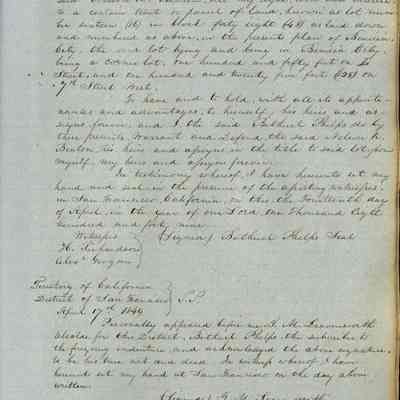 to a certain tract or parcel of land, known as lot num
ber sixteen (16) in block forty eight (48) as laid down
and numbered as above, in the present plan of Benicia
City, the said lot lying and being in Benicia City,
being a corner lot, one hundred and fifty feet on
Street, and one hundred and twenty five feet (125) on
Street West.
To have and to hold, with all its appurte-
nances and advantages, to himself, his heirs and as-
signs forever, and I the said Bethuel Phelps do by
these presents, Warrant and Defend, the said
his heirs and assigns in the title to said lot, for
myself, my heirs and assigns forever.
In testimony whereof, I have hereunto set my
hand and seal in the presence of the
in San Francisco, California, on this the Fourteenth day
of April, in the year of our Lord, one Thousand Eight
hundred and forty nine.
Witnesses (Signed) Bethuel Phelps Seal
H. Richardson
Territory of California
District of San Francisco S.S.
April 17th 1849
Personally appeared before me T. M. Leavenworth
Alcalde for the District, Bethuel Phelps, the subscriber to
the foregoing indenture, and acknowledged the above signature
to be his true act and deed. In witness whereof I have
hereunto set my hand at San Francisco on the day above
written.